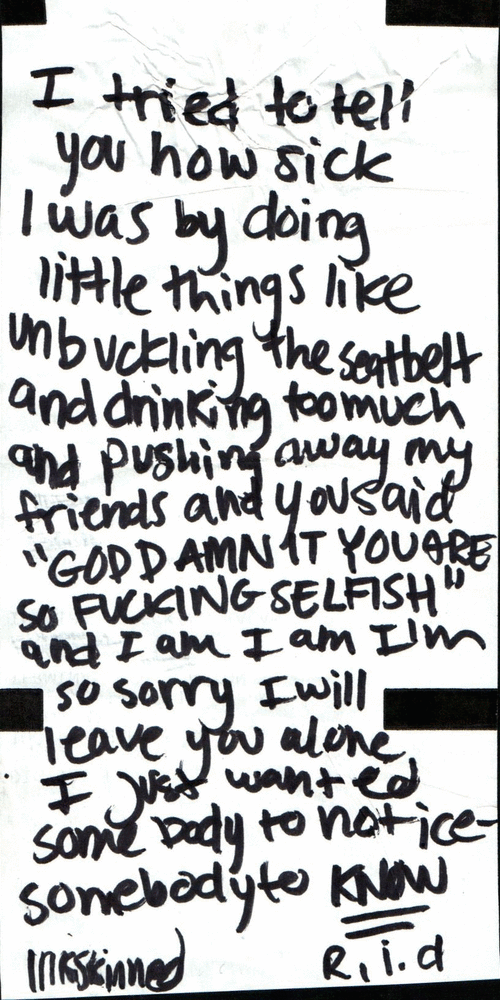 I tried to tell
you how sick
I was by doing
little things like
unbuckling the seatbelt
and drinking too much
and pushing away my
friends and you said
"GODDAMN IT YOU ARE
SO FUCKING SELFISH"
and I am I am I'm
so sorry I will
leave you alone
I just wanted
somebody to notice-
somebody to KNOW
inkskinned R.i.d